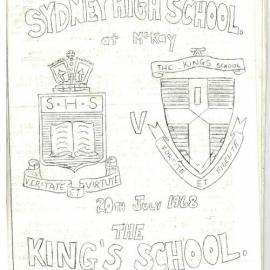 SYDNEY HIGH SCHOOL.
at McKay
THE KING'S SCHOOL
S H S
V
FORTITER ET FIDELITER
VERITATE ET VIRTUTE
20TH JULY 1968
THE
KING'S SCHOOL.